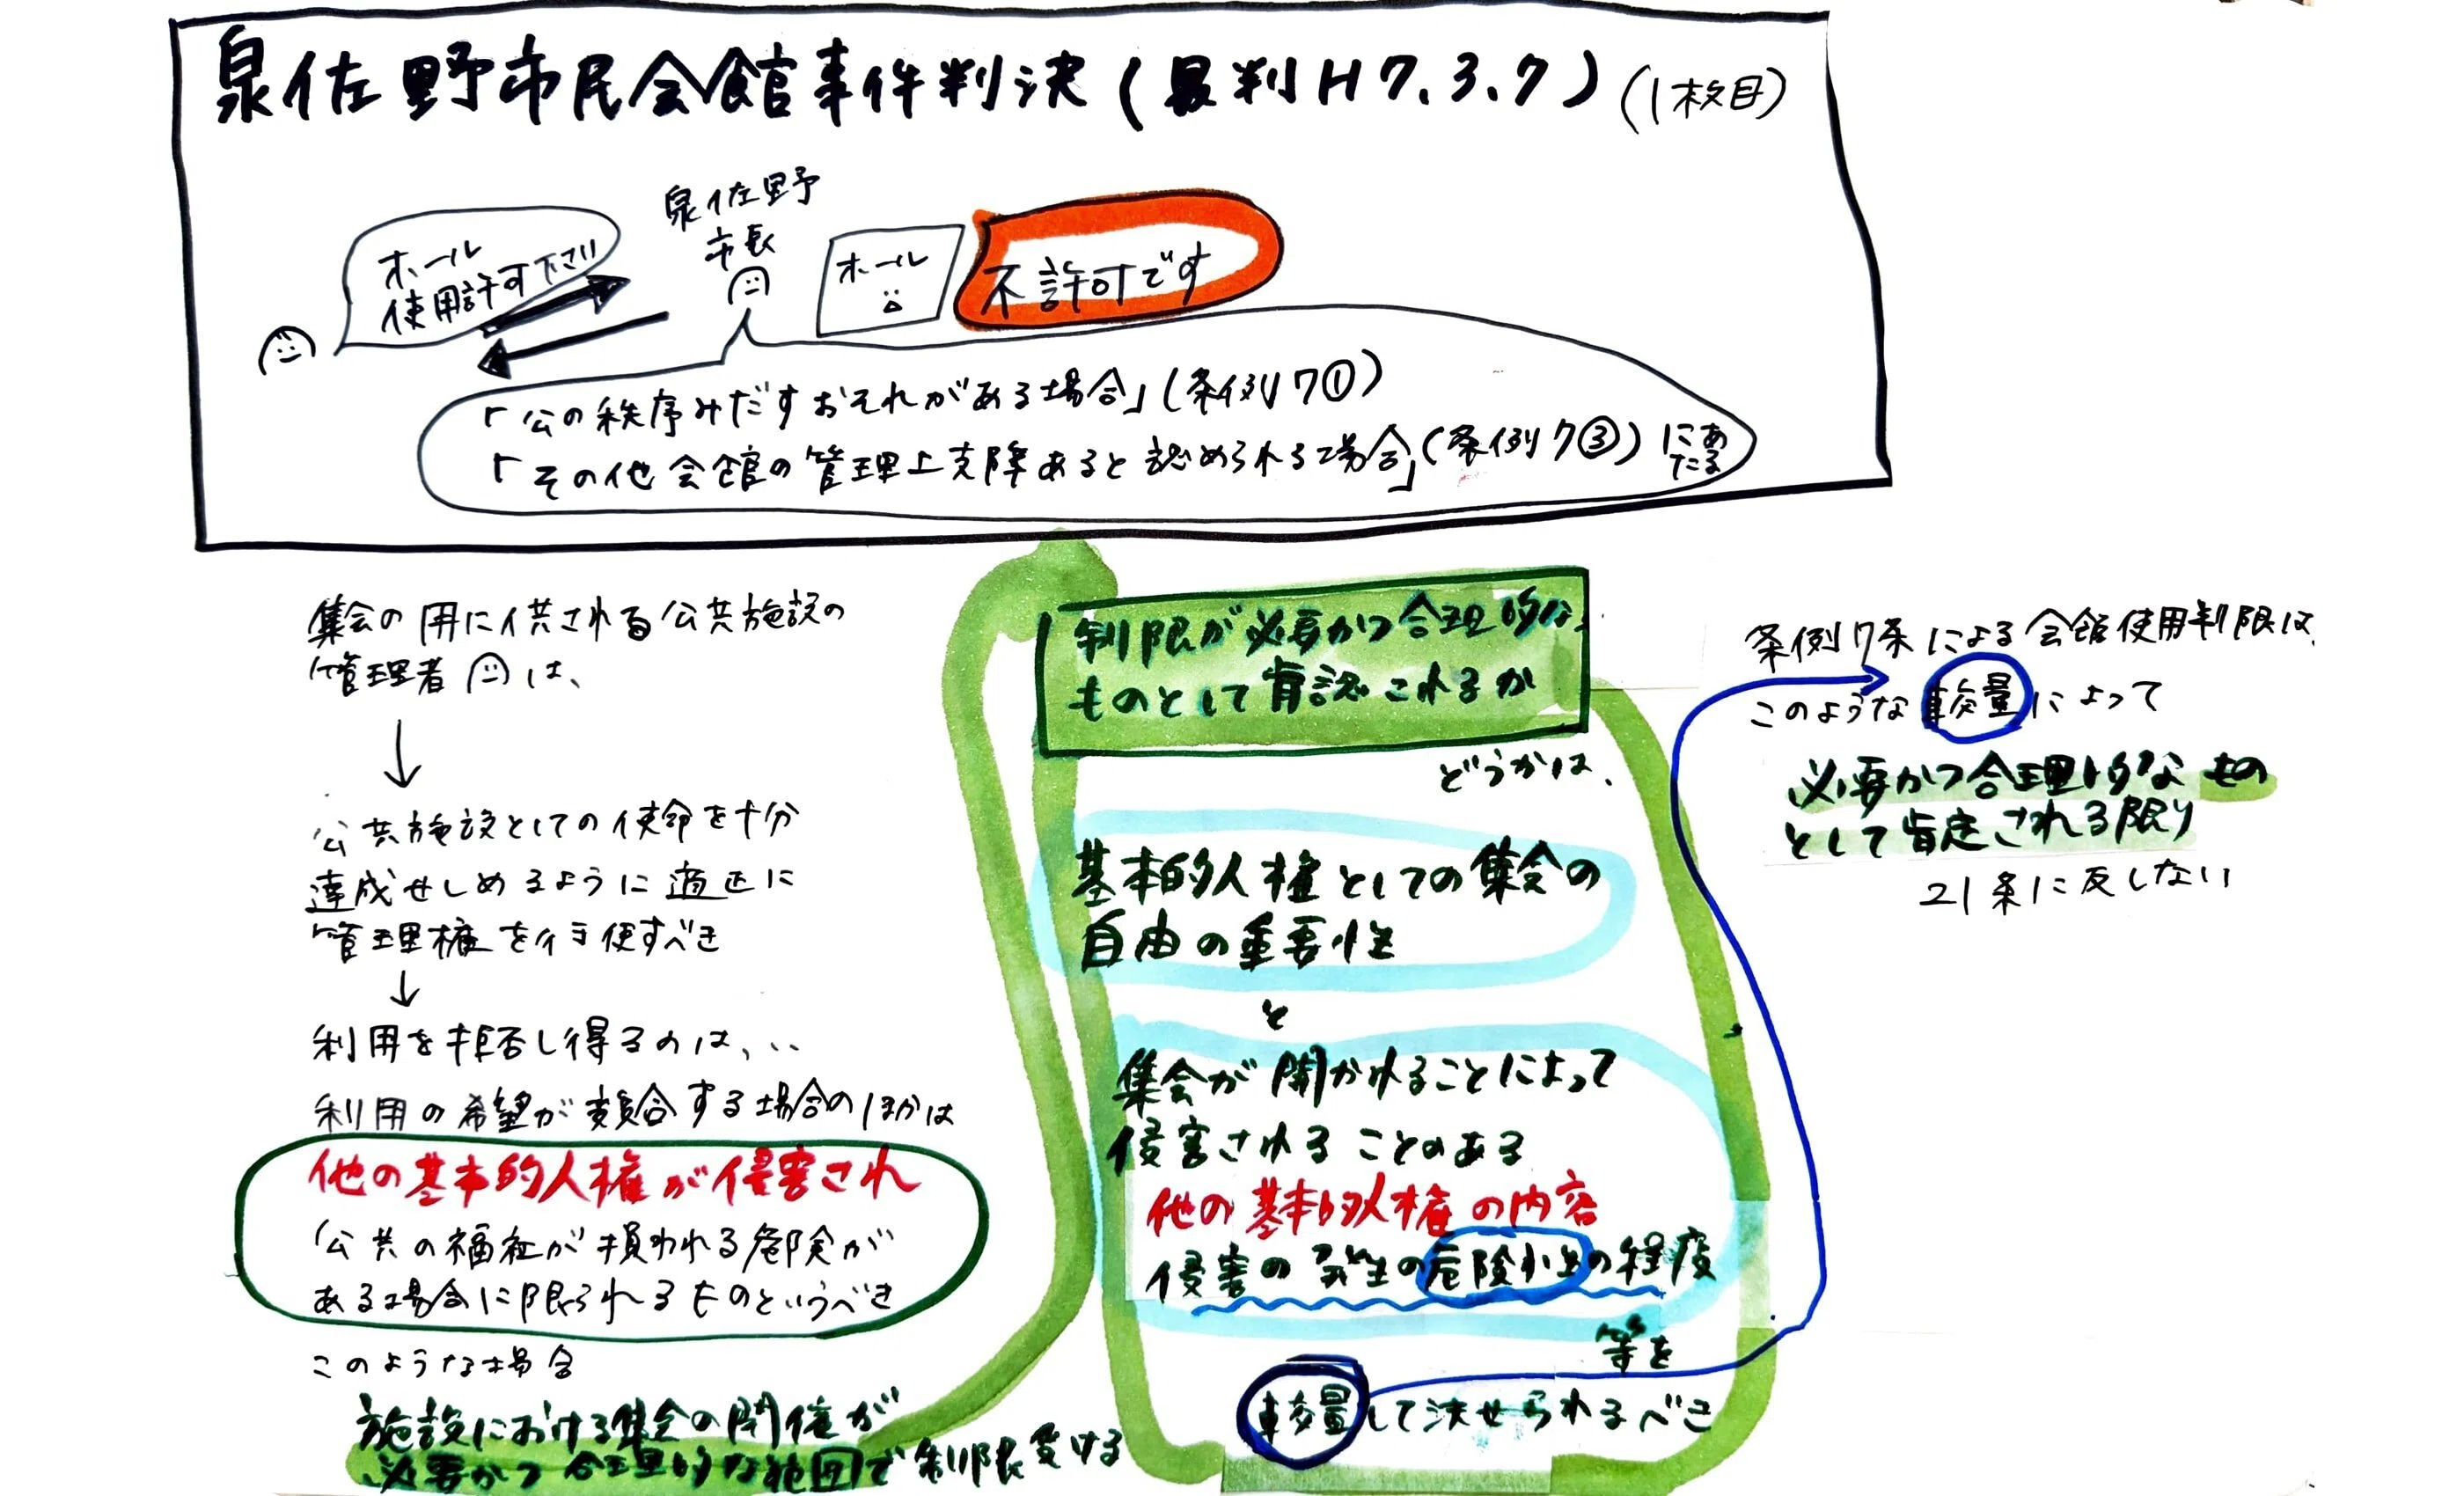 泉佐野市民会館事件判決(最判H7.3.7)(1枚目)
泉佐野
市長
ホール
使用許可下さい
ホール
不許可です
「公の秩序みだすおそれがある場合」(条例7①)
「その他会館の管理上支障あると認められる場合」(条例7③)にあ
たる
集会の用に供される公共施設の
管理者は、
公共施設としての使命を十分
達成せしめるように適正に
管理権を行使すべき
利用を拒否し得るのは、‥
利用の希望が競合する場合のほかは
他の基本的人権が侵害され
公共の福祉が損われる危険が
ある場合に限られるものというべき
このような場合
施設における集会の開催が
必要かつ合理的な範囲で制限受ける
制限が必要かつ合理的な
ものとして肯認されるか
どうかは、
基本的人権としての集会の
自由の重要性
と
集会が開かれることによって
侵害されることのある
他の基本的人権の内容
侵害の発生の危険性の程度
等を
較量して決せられるべき
条例7条による会館使用制限は、
このような較量によって
必要かつ合理的なもの
として肯定される限り
21条に反しない